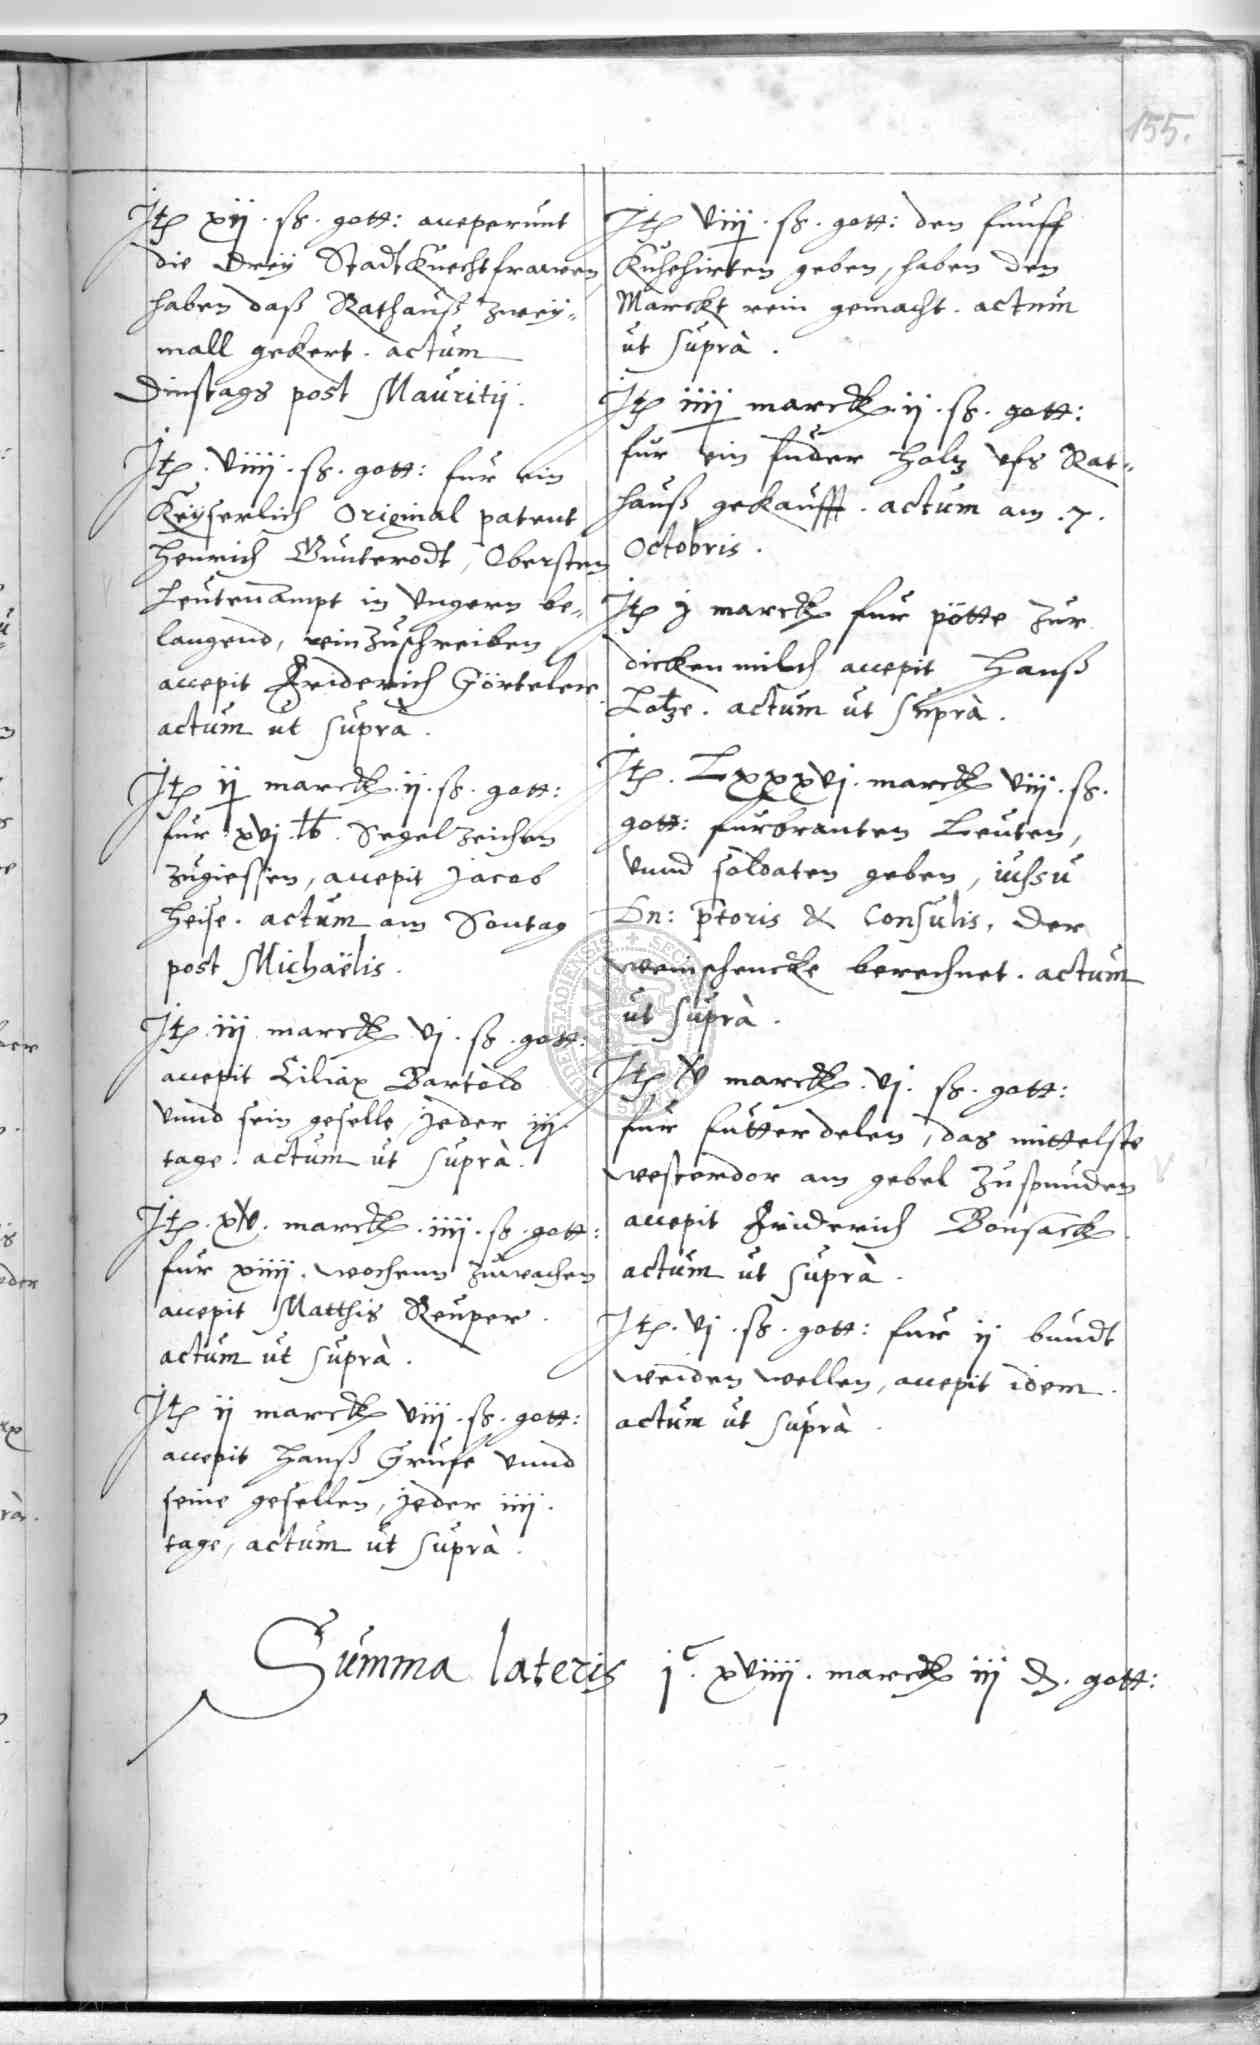 155.
Itē xij . ß . gott: acceperunt
die drey StadtKnechtfrawen
haben daß Rathauß zwey-
mall gekert . actum
Dinstags post Mauritij .
Itē . viiij . ß . gott: fur ein
Keyserlich Original patent
Henrich Gunterodt, Obersten
Leutenampt in Ungern be-
langend, einzuschreiben
accepit Friderich Görteler
actum ut suprà .
Itē ij marck . ij . ß . gott:
fur xvj . lb . Segel zeichen
zugiessen, accepit Jacob
Heise . actum am Sontag
post Michaëlis .
Itē iij marck vj . ß . gott:
accepit Ciliax Bartold
vnnd sein geselle, jeder iij
tage . actum ut suprà .
Itē . xv . marck . iiij . ß . gott:
fur xiiij . wochenn zuwachen
accepit Matthis Reuper .
actum ut suprà .
Itē ij marck viij . ß . gott:
accepit Hanß Grufe vnnd
seine gesellen, jeder iiij .
tage, actum ut suprà .
Itē viij . ß . gott: den funff
Kuhehirten geben, haben den
Marckt rein gemacht . actum
ut suprà .
Itē iiij marck . ij . ß . gott:
fur ein fuder holz vfs Rat-
hauß gekaufft . actum am . 7 .
Octobris .
Itē j marck fur pötte zur
dicken milch accepit Hanß
Lotze . actum ut suprà .
Itē . Lxxxvj . marck viij . ß .
gott: furbranten Leuten,
vnnd soldaten geben, iussu
Dn: ptoris & Consulis, der
weinschencke berechnet . actum
ut suprà .
Itē xv marck . vj . ß . gott:
fur futterdelen, das mittelste
westerdor am gebel zuspunden
accepit Friderich Bonsack
actum ut suprà .
Itē . vj . ß . gott: fur ij bundt
weiden wellen, accepit idem .
actum ut suprà .
Summa lateris jc . xviiij . marck iij d . gott: